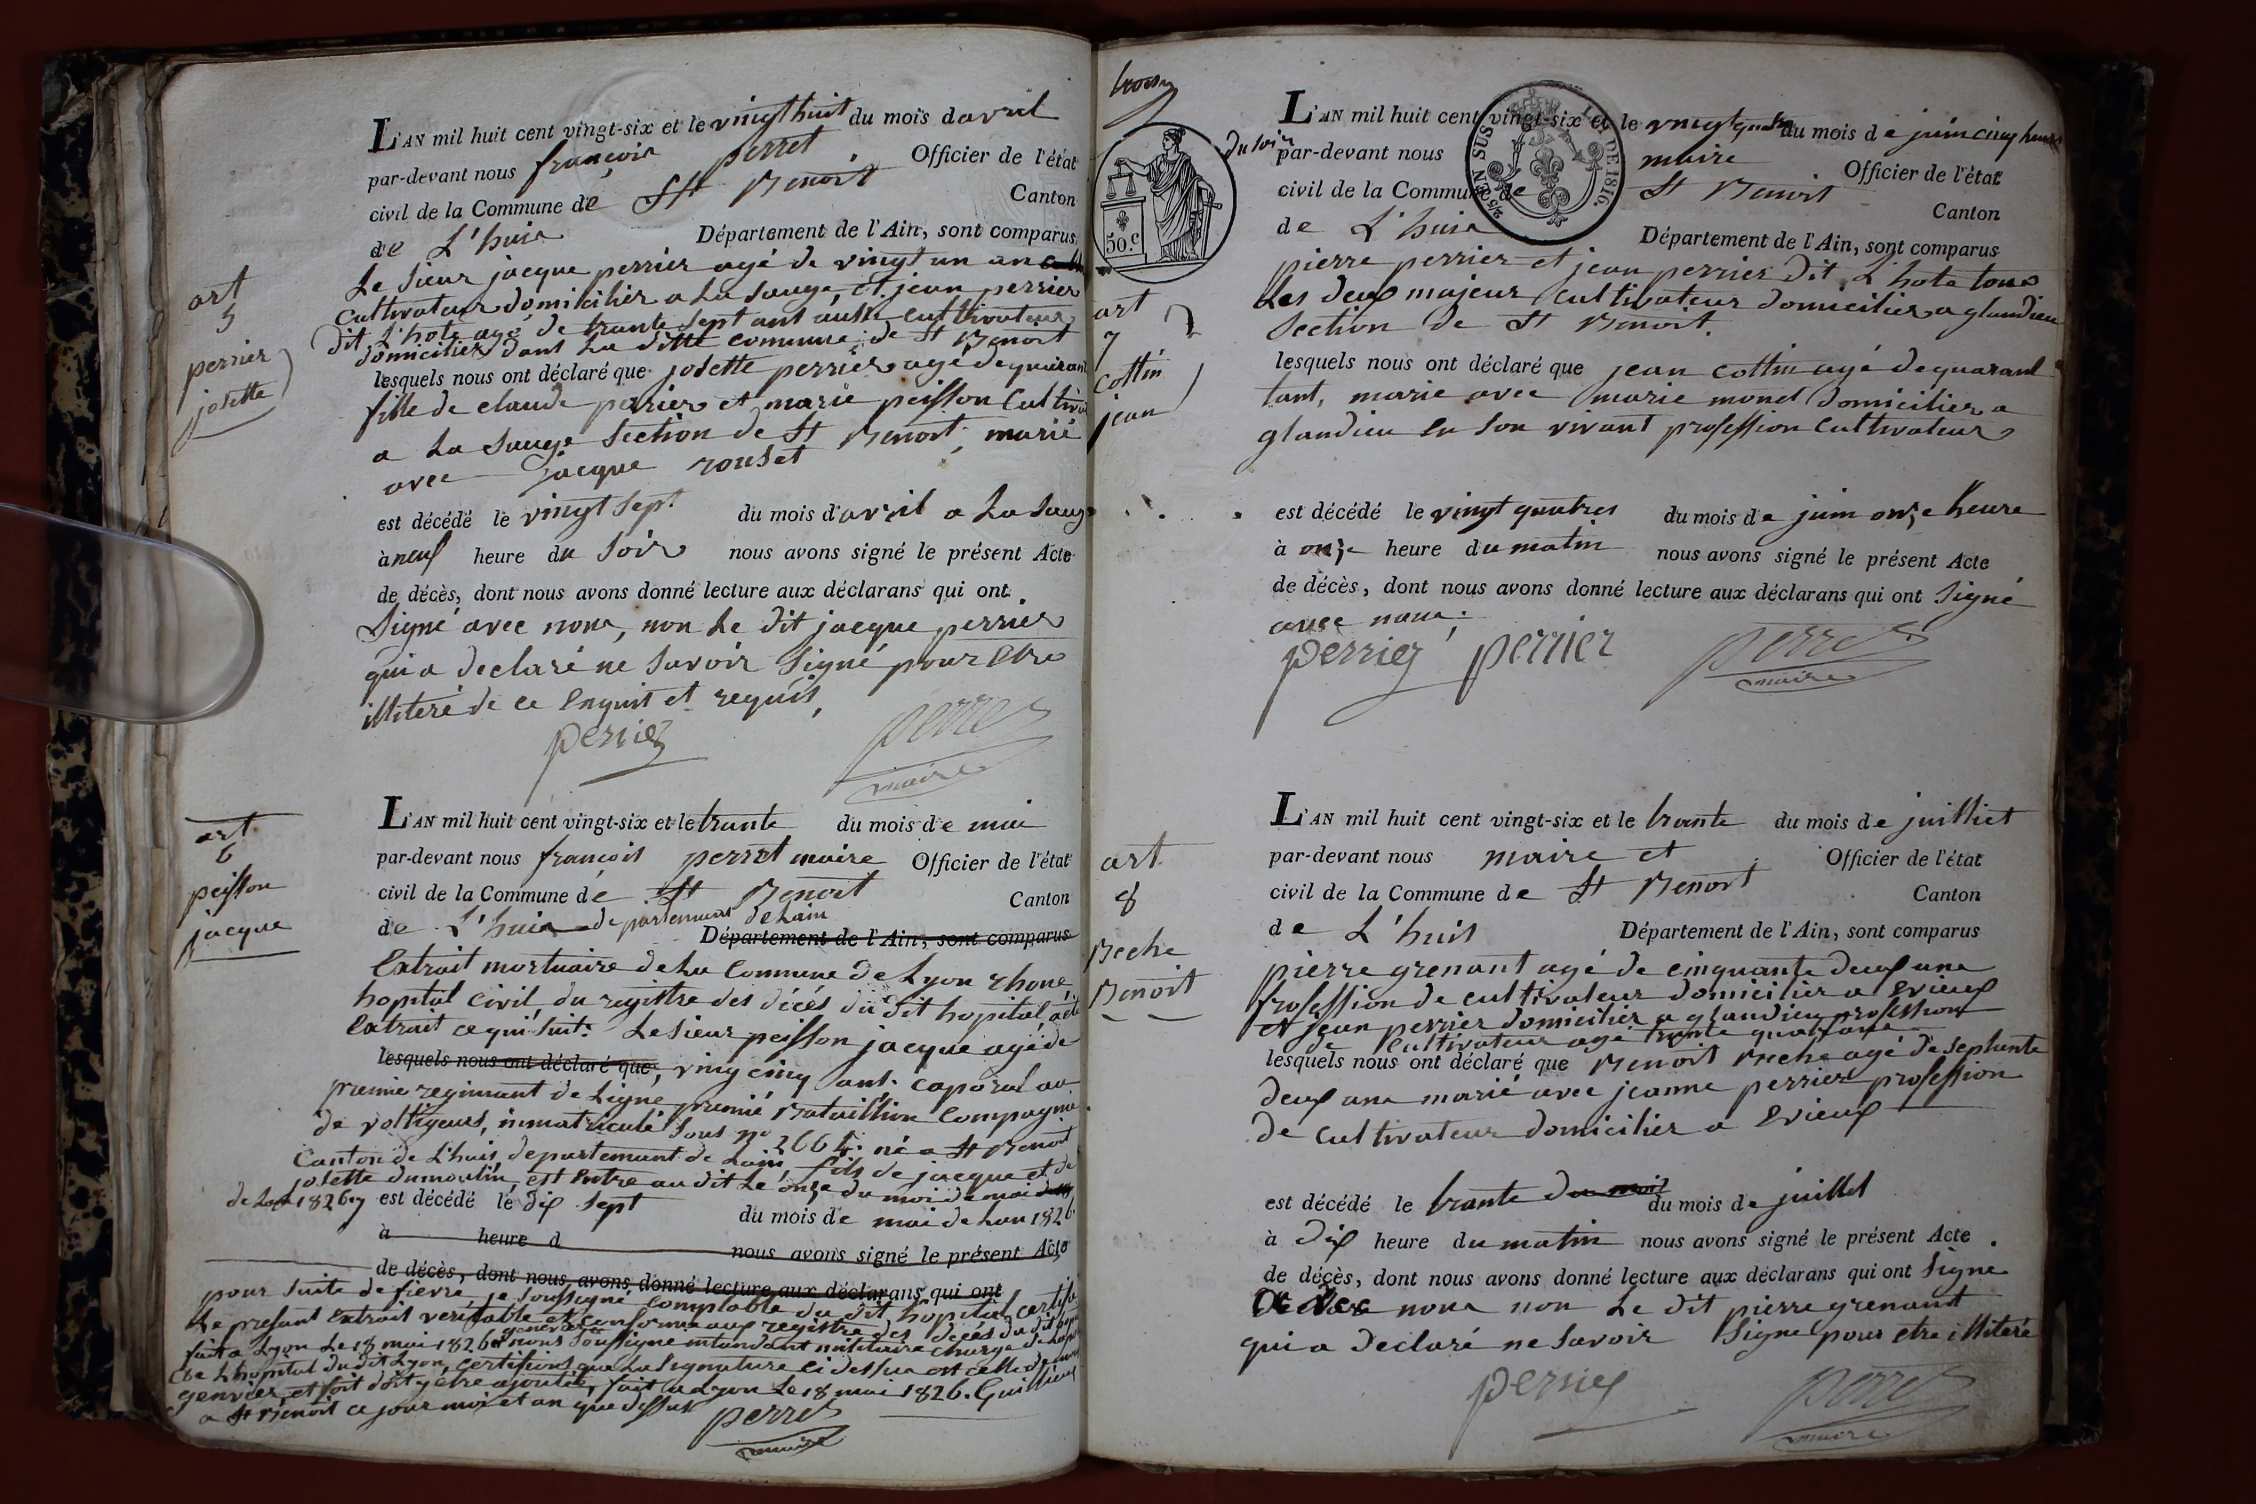 L'AN mil huit cent vingt-six et le vingt huit du mois d avril
par-devant nous françois perret Officier de l'état
civil de la Commune de St Benoit Canton
de L'huis Département de l'Ain, sont comparus
art
5
perrier
josette
Le sieur jacque perrier agé de vingt un an
cultivateur domicilier a La sauge, et jean perrier
dit L'hote agé de trante sept ant aussi cultivateur
domicilier dant La ditte commune de St Benoit
lesquels nous ont déclaré que josette perrier agé de quarant
fille de claude perrier et marie peisson cultiva
a La sauge section de St Benoit, marié
avec jacque rouset
est décédé le vingt sept du mois d'avril a La sauge
à neuf heure du soir nous avons signé le présent Acte
de décès, dont nous avons donné lecture aux déclarans qui ont
signé avec nous, non Le dit jacque perrier
qui a declaré ne savoir signé pour etre
illiteré de ce enquit et requis,
perrier perret
maire
L'AN mil huit cent vingt-six et le trante du mois de mai
par-devant nous françois perret maire Officier de l'état
civil de la Commune de St Benoit Canton
de L'huis departement de Lain
Département de l'Ain, sont comparus
art
6
peisson
jacque
Extrait mortuaire de La Commune de Lyon rhone
hopital civil, du registre des décés du dit hopital a été
extrait ce qui suit: Le sieur peisson jacque agé de
lesquels nous ont déclaré que, vingt cinq ant. caporal au
premie regimant de Ligne premié Bataillion Compagnie
de voltigeurs, immatriculé sous no 2664. né a St Benoit
Canton de L'huis, departement de Lain, fils de jacque et de
josette dumoulin, est entré au dit Le onze du moi de mai
de Lan 1826 est décédé le dix sept du mois de mai de Lan 1826
à heure d nous avons signé le présent Acte
de décès, dont nous avons donné lecture aux déclarans qui ont
pour suite de fievre, je soussigné comptable du dit hopital certifie
Le presant extrait veritable et conforme aux registre des decés du dit
fait a Lyon Le 18 mai 1826 nous soussigné intendant militaire chargé de
de L'hopital du dit Lyon, certifions que La signature ci dessus est celle de
genvier et foit doit y être ajoutée, fait a Lyon Le 18 mai 1826.
a St Benoit ce jour moi et an que dessus
perret
maire
du soir
L'AN mil huit cent vingt-six et le vingt quatre du mois de juin cinq heure
par-devant nous maire Officier de l'état
civil de la Commune de St Benoit Canton
de L'huis Département de l'Ain, sont comparus
TEN SUS
LOI DE 1816.
50.c
art
7
cottin
jean
pierre perrier et jean perrier dit L'hote tous
Les deux majeur cultivateur domicilier a glandieu
section de St Benoit.
lesquels nous ont déclaré que jean cottin agé de quarant
tant, marie avec marie monet domicilier a
glandieu en son vivant profession cultivateur
est décédé le vingt quatres du mois de juin onze heure
à onze heure du matin nous avons signé le présent Acte
de décès, dont nous avons donné lecture aux déclarans qui ont signé
avec nous;
perrier perrier perret
maire
L'AN mil huit cent vingt-six et le trante du mois de juilliet
par-devant nous maire et Officier de l'état
civil de la Commune de St Benoit Canton
de L'huis Département de l'Ain, sont comparus
art
8
Beche
Benoit
pierre grenant agé de cinquante deux ans
profession de cultivateur domicilier a Evieux
et jean perrier domicilier a glandieu profession
de cultivateur agé trante quatre ans
lesquels nous ont déclaré que Benoit Beche agé de septante
deux ans marié avec jeanne perrier profession
de cultivateur domicilier a Evieux
est décédé le trante du moi du mois de juillet
à dix heure du matin nous avons signé le présent Acte
de décès, dont nous avons donné lecture aux déclarans qui ont signé
avec nous non Le dit pierre grenant
qui a declaré ne savoir signe pour etre illiteré
perrier perret
maire